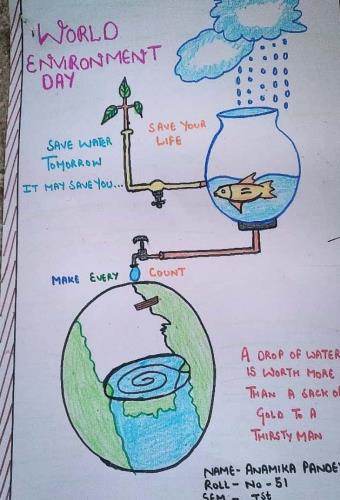 WORLD
ENVIRONMENT
DAY
SAVE YOUR
LIFE
SAVE WATER
TOMORROW
IT MAY SAVE YOU...
MAKE EVERY COUNT
A DROP OF WATER
IS WORTH MORE
THAN A SACK OF
GOLD TO A
THIRSTY MAN
NAME- ANAMIKA PANDEY
ROLL- No - 51
SEM - 1st